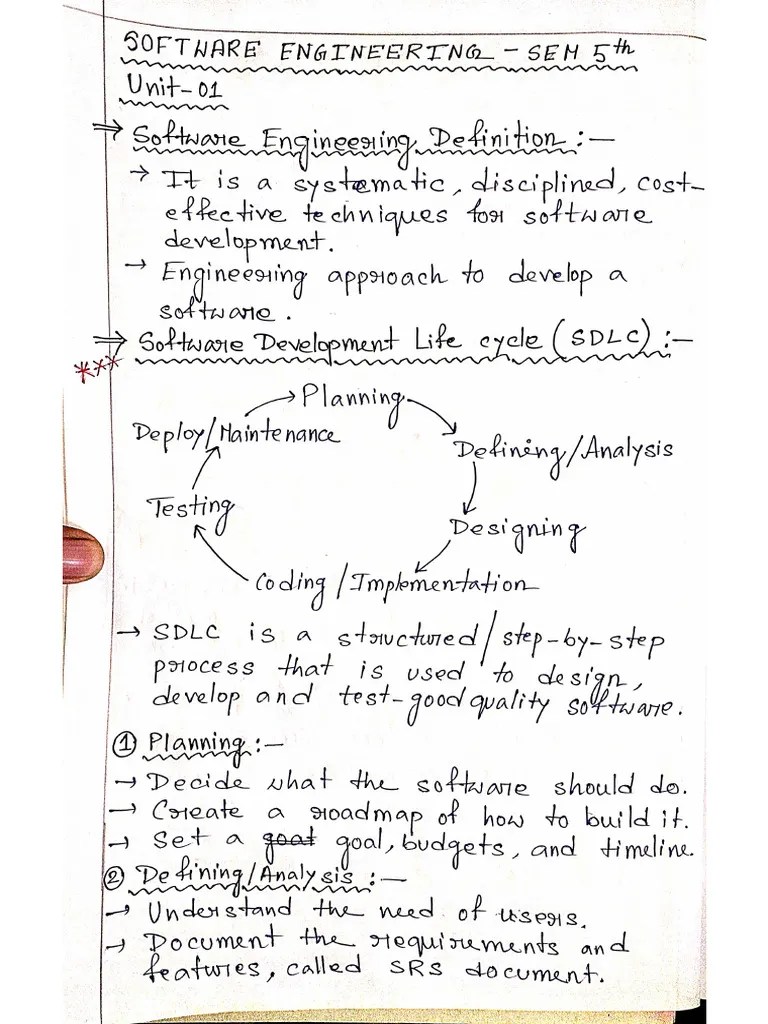 SOFTWARE ENGINEERING - SEM 5th
Unit-01
⇒ Software Engineering Definition :-
→ It is a systematic, disciplined, cost-
effective techniques for software
development.
→ Engineering approach to develop a
software.
⇒ Software Development Life cycle (SDLC) :-
***
Planning
Deploy/Maintenance
Defining/Analysis
Testing
Designing
Coding/Implementation
→ SDLC is a structured/step-by-step
process that is used to design,
develop and test-good quality software.
① Planning :-
→ Decide what the software should do.
→ Create a roadmap of how to build it.
→ Set a goat goal, budgets, and timeline.
② Defining/Analysis :-
→ Understand the need of users.
→ Document the requirements and
features, called SRS document.